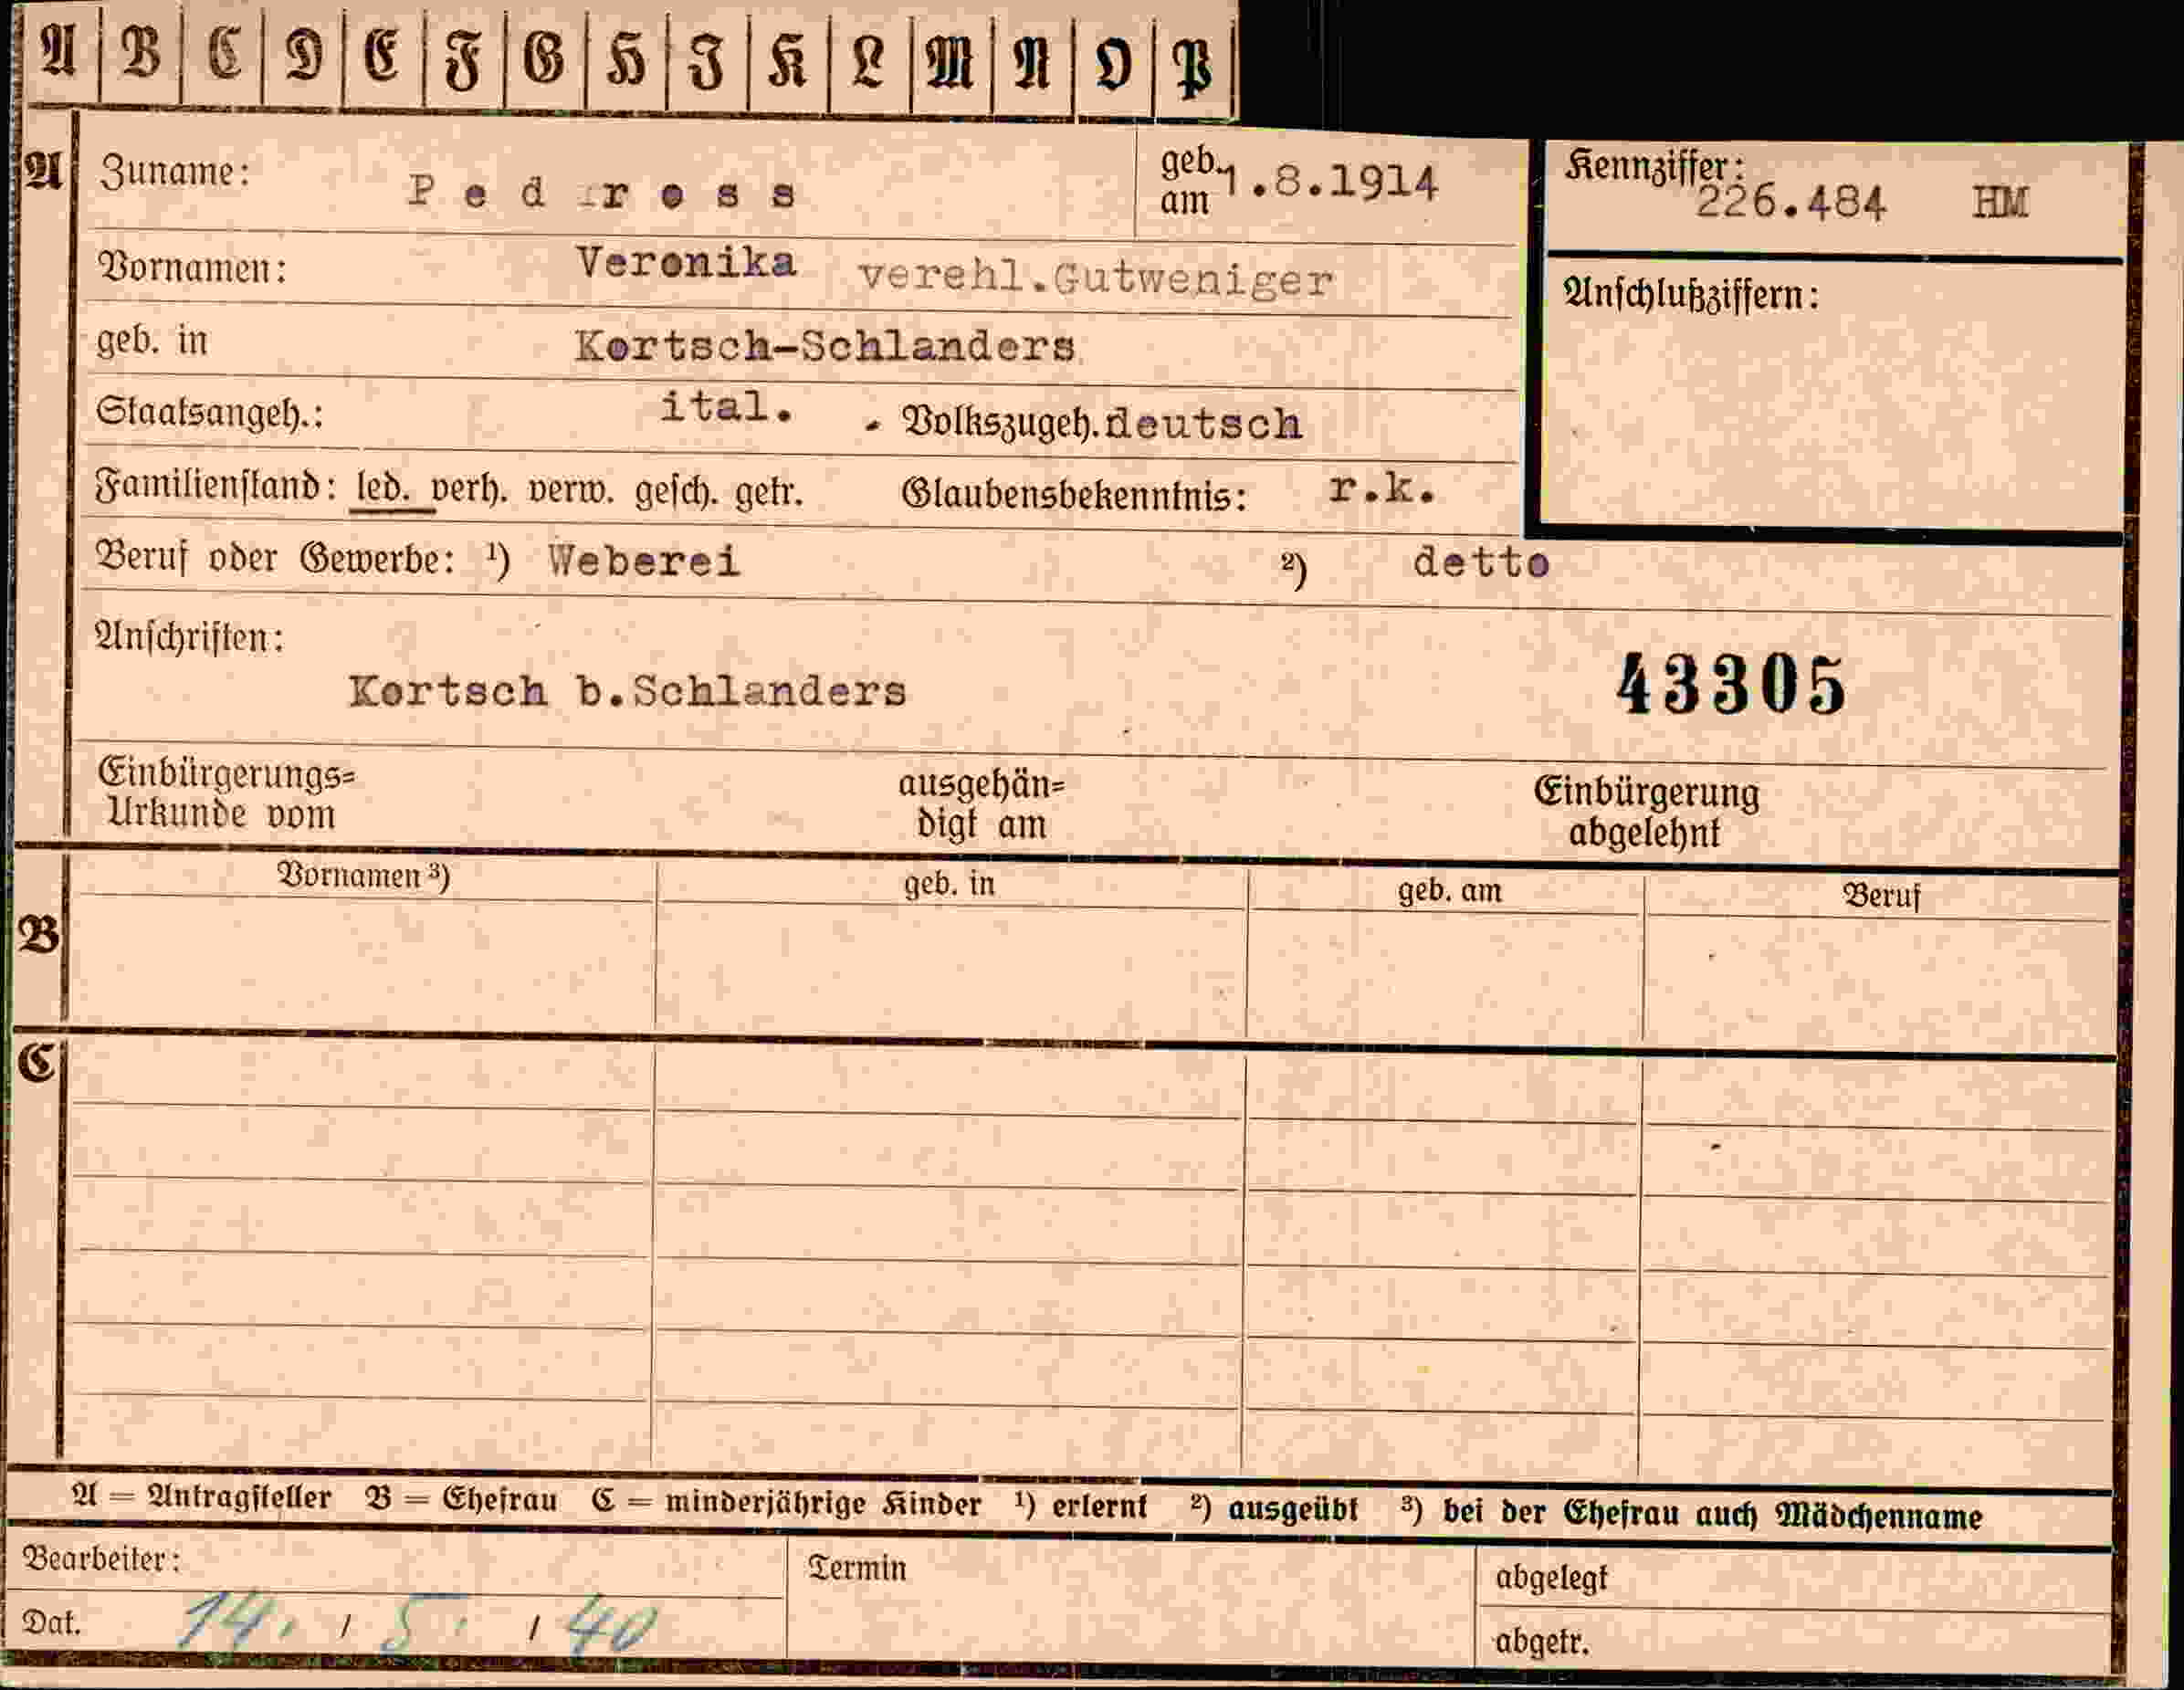 A B C D E F G H I K L M N O P
A Zuname: P e d r o s s geb. am 1.8.1914 Kennziffer: 226.484 HM
Vornamen: Veronika verehl.Gutweniger
Anschlußziffern:
geb. in Kortsch-Schlanders
Staatsangeh.: ital. . Volkszugeh. deutsch
Familienstand: led. verh. verw. gesch. getr. Glaubensbekenntnis: r.k.
Beruf oder Gewerbe: ¹) Weberei ²) detto
Anschriften:
Kortsch b.Schlanders 43305
Einbürgerungs= ausgehän= Einbürgerung
Urkunde vom digt am abgelehnt
Vornamen ³) geb. in geb. am Beruf
B
C
A = Antragsteller B = Ehefrau C = minderjährige Kinder ¹) erlernt ²) ausgeübt ³) bei der Ehefrau auch Mädchenname
Bearbeiter: Termin abgelegt
Dat. 14. / 5. / 40 abgetr.